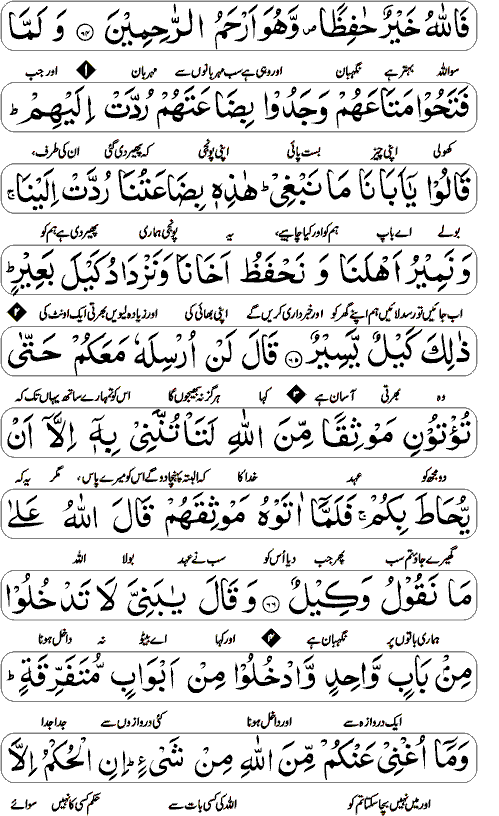 فَاللّٰهُ خَيْرٌ حٰفِظًا ۪ وَّهُوَ اَرْحَمُ الرّٰحِمِيْنَ ﴿۶۴﴾ وَ لَمَّا
سو اللہ بہتر ہے نگہبان اور وہی ہے سب مہربانوں سے مہربان ۱ اور جب
فَتَحُوْا مَتَاعَهُمْ وَجَدُوْا بِضَاعَتَهُمْ رُدَّتْ اِلَيْهِمْ ؕ
کھولی اپنی چیز بست پائی اپنی پونجی کہ پھیر دی گئی ان کی طرف،
قَالُوْا يٰۤاَبَانَا مَا نَبْغِيْ ؕ هٰذِهٖ بِضَاعَتُنَا رُدَّتْ اِلَيْنَا ۚ
بولے اے باپ ہم کو اور کیا چاہیے، یہ پونجی ہماری پھیر دی ہے ہم کو
وَنَمِيْرُ اَهْلَنَا وَ نَحْفَظُ اَخَانَا وَنَزْدَادُ كَيْلَ بَعِيْرٍ ؕ
اب جائیں تو رسد لائیں ہم اپنے گھر کو اور خبرداری کریں گے اپنی بھائی کی اور زیادہ لیویں بھرتی ایک اونٹ کی ۲
ذٰلِكَ كَيْلٌ يَّسِيْرٌ ﴿۶۵﴾ قَالَ لَنْ اُرْسِلَهٗ مَعَكُمْ حَتّٰى
وہ بھرتی آسان ہے ۳ کہا ہرگز نہ بھیجوں گا اس کو تمہارے ساتھ یہاں تک کہ
تُؤْتُوْنِ مَوْثِقًا مِّنَ اللّٰهِ لَتَاْتُنَّنِيْ بِهٖۤ اِلَّاۤ اَنْ
دو مجھ کو عہد خدا کا کہ البتہ پہنچا دو گے اس کو میرے پاس، مگر یہ کہ
يُّحَاطَ بِكُمْ ۚ فَلَمَّاۤ اٰتَوْهُ مَوْثِقَهُمْ قَالَ اللّٰهُ عَلٰى
گھیرے جاؤ تم سب پھر جب دیا اُس کو سب نے عہد بولا اللہ
مَا نَقُوْلُ وَكِيْلٌ ﴿۶۶﴾ وَ قَالَ يٰبَنِيَّ لَا تَدْخُلُوْا
ہماری باتوں پر نگہبان ہے ۴ اور کہا اے بیٹو نہ داخل ہونا
مِنْۢ بَابٍ وَّاحِدٍ وَّادْخُلُوْا مِنْ اَبْوَابٍ مُّتَفَرِّقَةٍ ؕ
ایک دروازہ سے اور داخل ہونا کئی دروازوں سے جدا جدا
وَمَاۤ اُغْنِيْ عَنْكُمْ مِّنَ اللّٰهِ مِنْ شَيْءٍ ؕ اِنِ الْحُكْمُ اِلَّا
اور میں نہیں بچا سکتا تم کو اللہ کی کسی بات سے حکم کسی کا نہیں سوائے